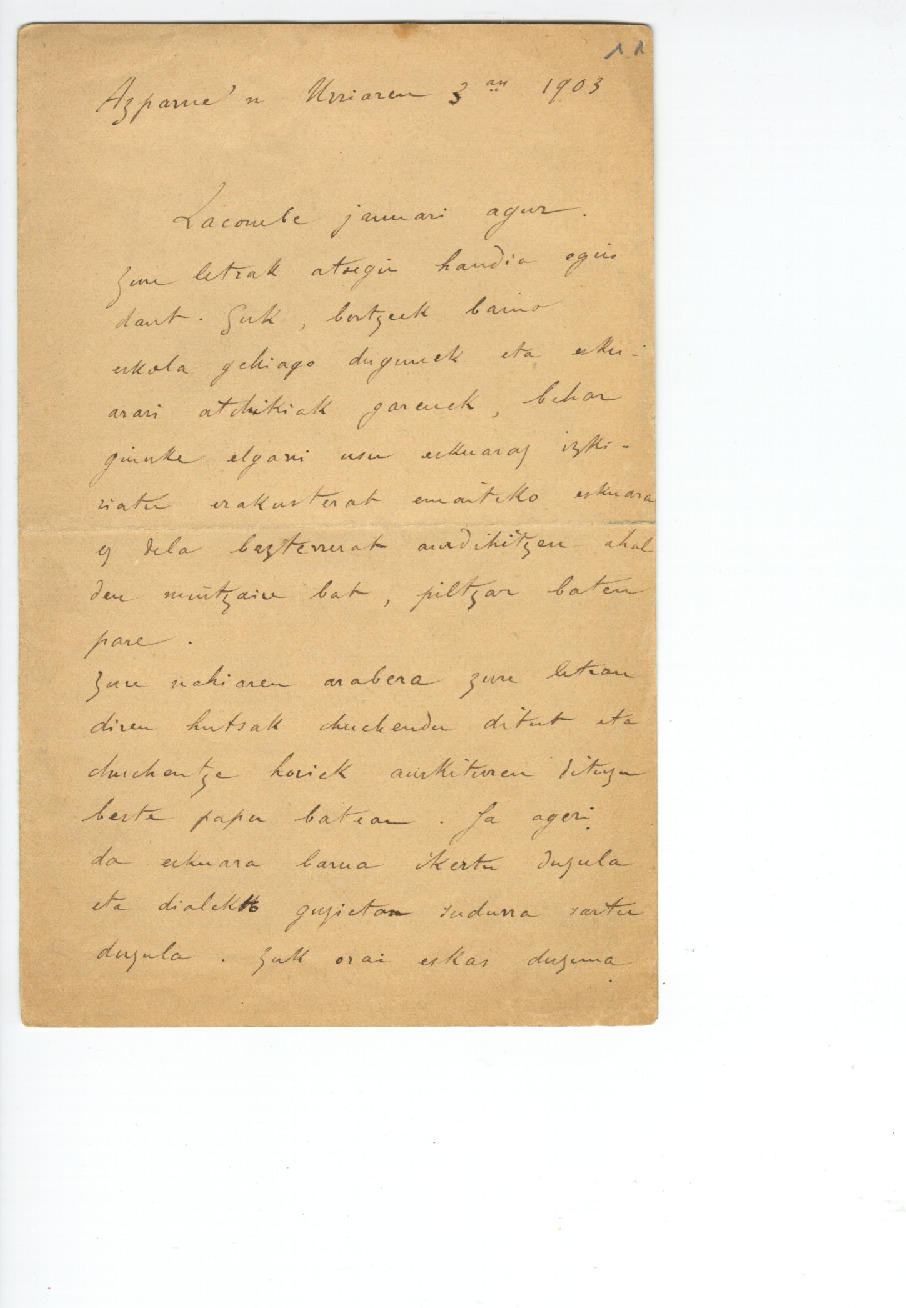 11
Azparne'n Urriaren 3 an 1903
Lacombe jaunari agur.
Zure letrak atsegin handia egin
daut. Guk, bertzeek baino
eskola gehiago dugunek eta esku-
arari atchikiak garenek, behar
ginuke elgarri usu eskuaraz izki-
riatu erakusterat emaiteko eskuara
ez dela bazterrerat aurdikitzen ahal
den mintzaire bat, piltzar baten
pare.
Zure nahiaren arabera zure letran
diren hutsak chuchendu ditut eta
chuchentze horiek aurkituren dituzu
beste paper batean. Ja ageri
da eskuara barna ikertu duzula
eta dialekto guzietan sudurra sartu
duzula. Zuk orai eskas duzuna